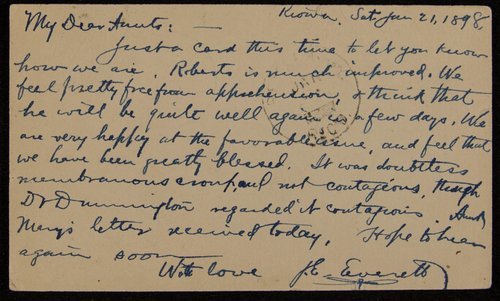 Kiowa, Sat, Jan 21, 1898,
My Dear Aunts: —
Just a card this time to let you know
how we are. Roberts is much improved. We
feel pretty free from apprehension, & think that
he will be quite well again in a few days. We
are very happy at the favorable issue, and feel that
we have been greatly blessed. It was doubtless
membranous croup, and not contagious, though
Dr Dunnington regarded it contagious. Aunt
Mary's letter received today. Hope to hear
again soon.
With love J. E. Everett